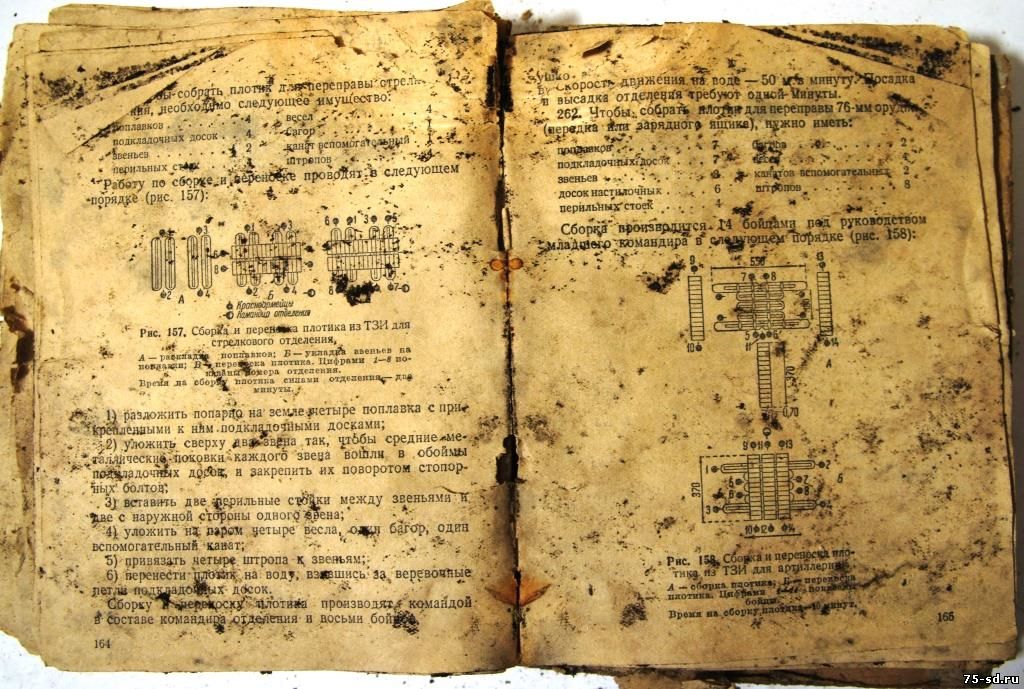 собрать плотик для переправы
необходимо следующее имущество:
поплавков 4 весел 4
подкладочных досок 4 багор
звеньев 2 канат вспомогательный
перильных стоек штропов
Работу по сборке и переноске проводят в следующем
порядке (рис. 157):
6 1 3 5
2 4 2 4 7
А Б
Красноармейцы
Командир отделения
Рис. 157. Сборка и переноска плотика из ТЗИ для
стрелкового отделения,
А — раскладка поплавков; Б — укладка звеньев на
поплавки; В — переноска плотика. Цифрами 1—8 по-
казаны номера отделения.
Время на сборку плотика силами отделения — две
минуты.
1) разложить попарно на земле четыре поплавка с при-
крепленными к ним подкладочными досками;
2) уложить сверху два звена так, чтобы средние ме-
таллические поковки каждого звена вошли в обоймы
подкладочных досок, и закрепить их поворотом стопор-
ных болтов;
3) вставить две перильные стойки между звеньями и
две с наружной стороны одного звена;
4) уложить на паром четыре весла, один багор, один
вспомогательный канат;
5) привязать четыре штропа к звеньям;
6) перенести плотик на воду, взявшись за веревочные
петли подкладочных досок.
Сборку и переноску плотика производят командой
в составе командира отделения и восьми бойцов.
164
Скорость движения на воде — 50 м в минуту. Посадка
и высадка отделения требуют одной минуты.
262. Чтобы собрать плотик для переправы 76-мм орудия
(передка или зарядного ящика), нужно иметь:
поплавков 7 багров 2
подкладочных досок 7 весел 4
звеньев 3 канатов вспомогательных 2
досок настилочных 6 штропов 8
перильных стоек 4
Сборка производится 14 бойцами под руководством
младшего командира в следующем порядке (рис. 158):
9 550 13
7 8
10 11 14
А
370
0,70
9 11 13
1 2
370 7 Б
3 4
10 12 14
Рис. 158. Сборка и переноска пло-
тика из ТЗИ для артиллерии:
А — сборка плотика; Б — переноска
плотика. Цифрами показаны
бойцы.
Время на сборку плотика 10 минут.
165
75-sd.ru